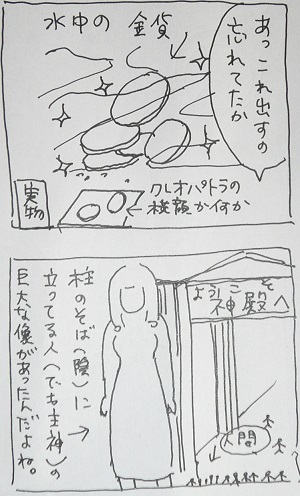 水中の 金貨
あっこれ出すの
忘れてたか
実物
クレオパトラの
横顔か何か
ようこそ
神殿へ
柱のそば(陰)に
立ってる人(でも主神)の
巨大な像があったんだよね。
人間